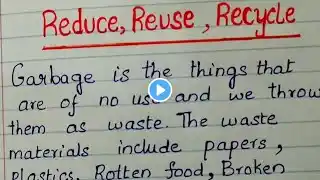 Reduce, Reuse, Recycle
Garbage is the things that
are of no use and we throw
them as waste. The waste
materials include papers,
plastics, Rotten food, Broken